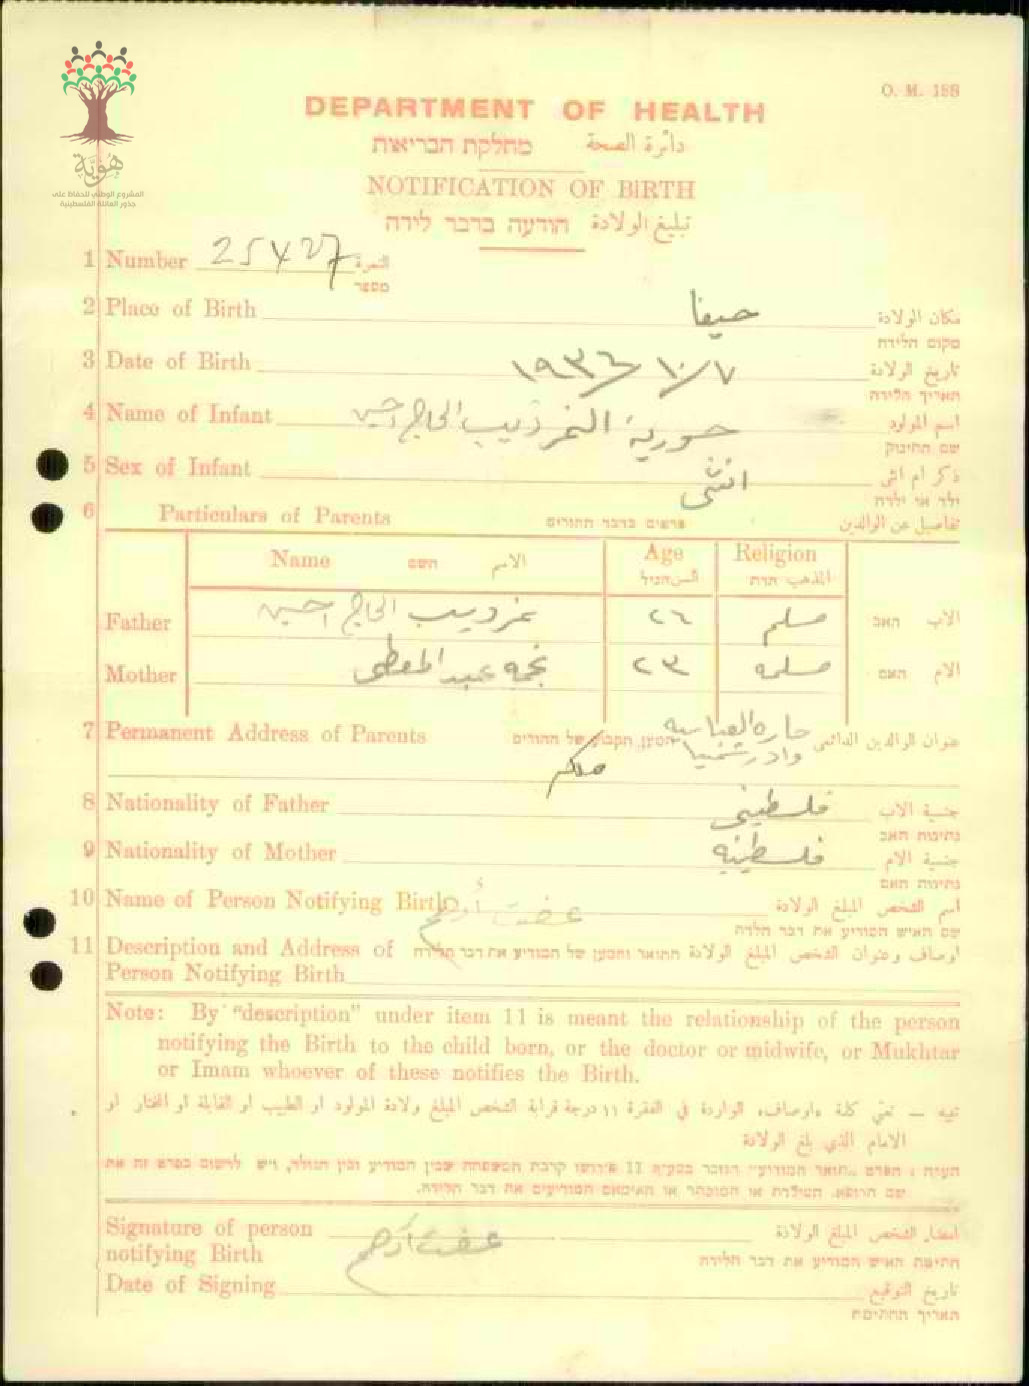 هُوِيَّة
المشروع الوطني للحفاظ على
جذور العائلة الفلسطينية
O. M. 188
DEPARTMENT OF HEALTH
מחלקת הבריאות دائرة الصحة
NOTIFICATION OF BIRTH
הודעה בדבר לידה تبليغ الولادة
1 Number 25427 النمرة
מספר
2 Place of Birth حيفا مكان الولادة
מקום הלידה
3 Date of Birth ٧/١٠/١٩٣٦ تاريخ الولادة
תאריך הלידה
4 Name of Infant حورية النمر ذيب الحاج احسين اسم المولود
שם התינוק
5 Sex of Infant انثى ذكر ام انثى
ילד או ילדה
6 Particulars of Parents פרטים בדבר ההורים تفاصيل عن الوالدين
Name השם الاسم Age السن הגיל Religion المذهب הדת
Father نمر ذيب الحاج احسين ٢٦ مسلم האב الاب
Mother نجمه عبد المعطي ٢٣ مسلمه האם الام
7 Permanent Address of Parents המען הקבוע של ההורים حاره العباسيه عنوان الوالدين الدائمي
وادرشميا
ملكم
8 Nationality of Father فلسطيني جنسية الاب
נתינות האב
9 Nationality of Mother فلسطينيه جنسية الام
נתינות האם
10 Name of Person Notifying Birth عفت أدهم اسم الشخص المبلغ الولادة
שם האיש המודיע את דבר הלדה
11 Description and Address of התואר והמען של המודיע את דבר הלידה اوصاف وعنوان الشخص المبلغ الولادة
Person Notifying Birth
Note: By "description" under item 11 is meant the relationship of the person
notifying the Birth to the child born, or the doctor or midwife, or Mukhtar
or Imam whoever of these notifies the Birth.
تنبيه — تعني كلمة «اوصاف» الواردة في الفقرة ١١ درجة قرابة الشخص المبلغ ولادة المولود او الطبيب او القابلة او المختار او
الامام الذي بلغ الولادة
הערה: הפרט „תואר המודיע" הנזכר בסעיף 11 פירושו קרבת המשפחה שבין המודיע ובין הנולד, ויש לרשום בפרט זה את
שם הרופא, המילדת או המוכתר או האימאם המודיעים את דבר הלידה.
Signature of person عفت أدهم امضاء الشخص المبلغ الولادة
notifying Birth חתימת האיש המודיע את דבר הלידה
Date of Signing تاريخ التوقيع
תאריך החתימה